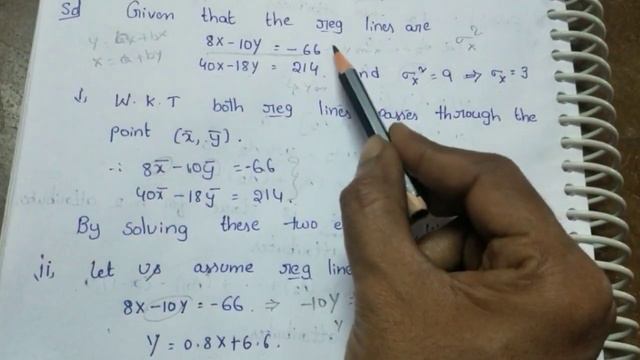 Sol Given that the reg lines are
8x - 10y = -66
40x - 18y = 214 and σx² = 9 ⇒ σx = 3
i, W.K.T both reg lines passes through the
point (x̄, ȳ).
∴ 8x̄ - 10ȳ = -66
40x̄ - 18ȳ = 214.
By solving these two
ii, let us assume reg line
8x - 10y = -66. ⇒ -10y =
y = 0.8x + 6.6.